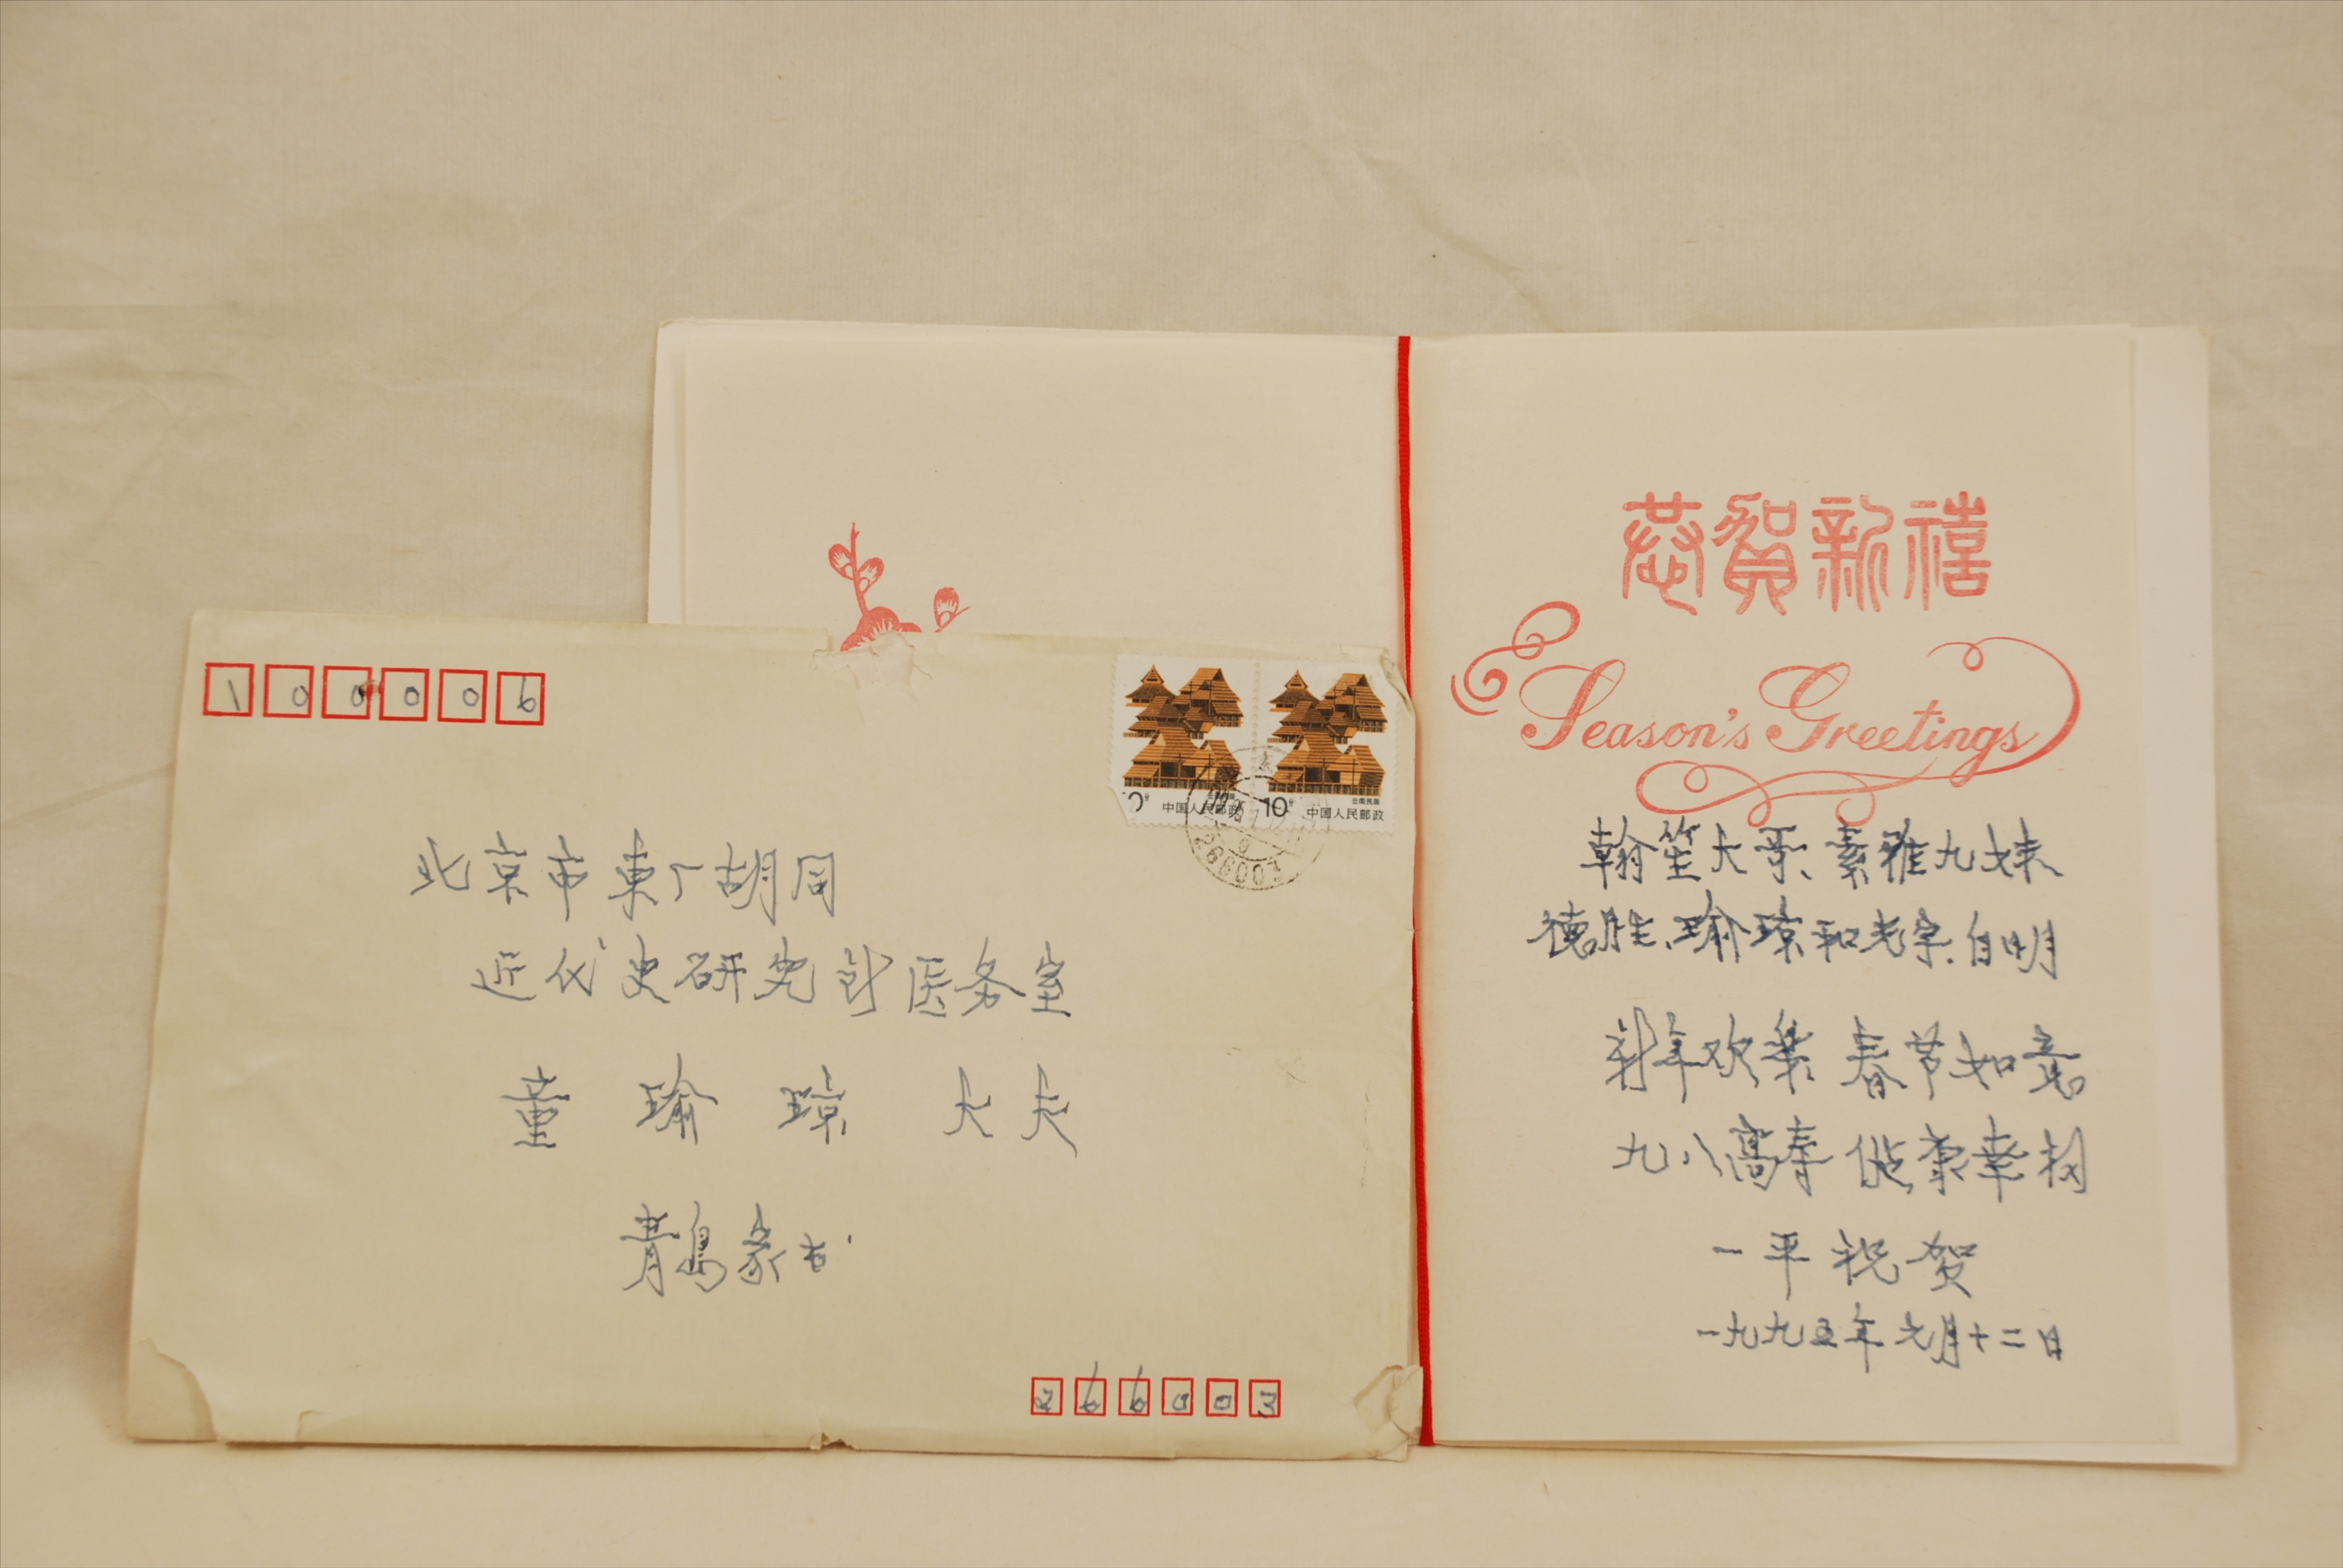 100006
10分 中国人民邮政
云南民居
10分 中国人民邮政
266001
北京市東厂胡同
近代史研究所医务室
童瑜琼大夫
青岛家书
266003
恭賀新禧
Season's Greetings
翰笙大哥、素雅九妹
德胜、瑜琼和光宇、自明
新年欢樂 春节如意
九八高寿 健康幸福
一平祝贺
一九九五年元月十二日